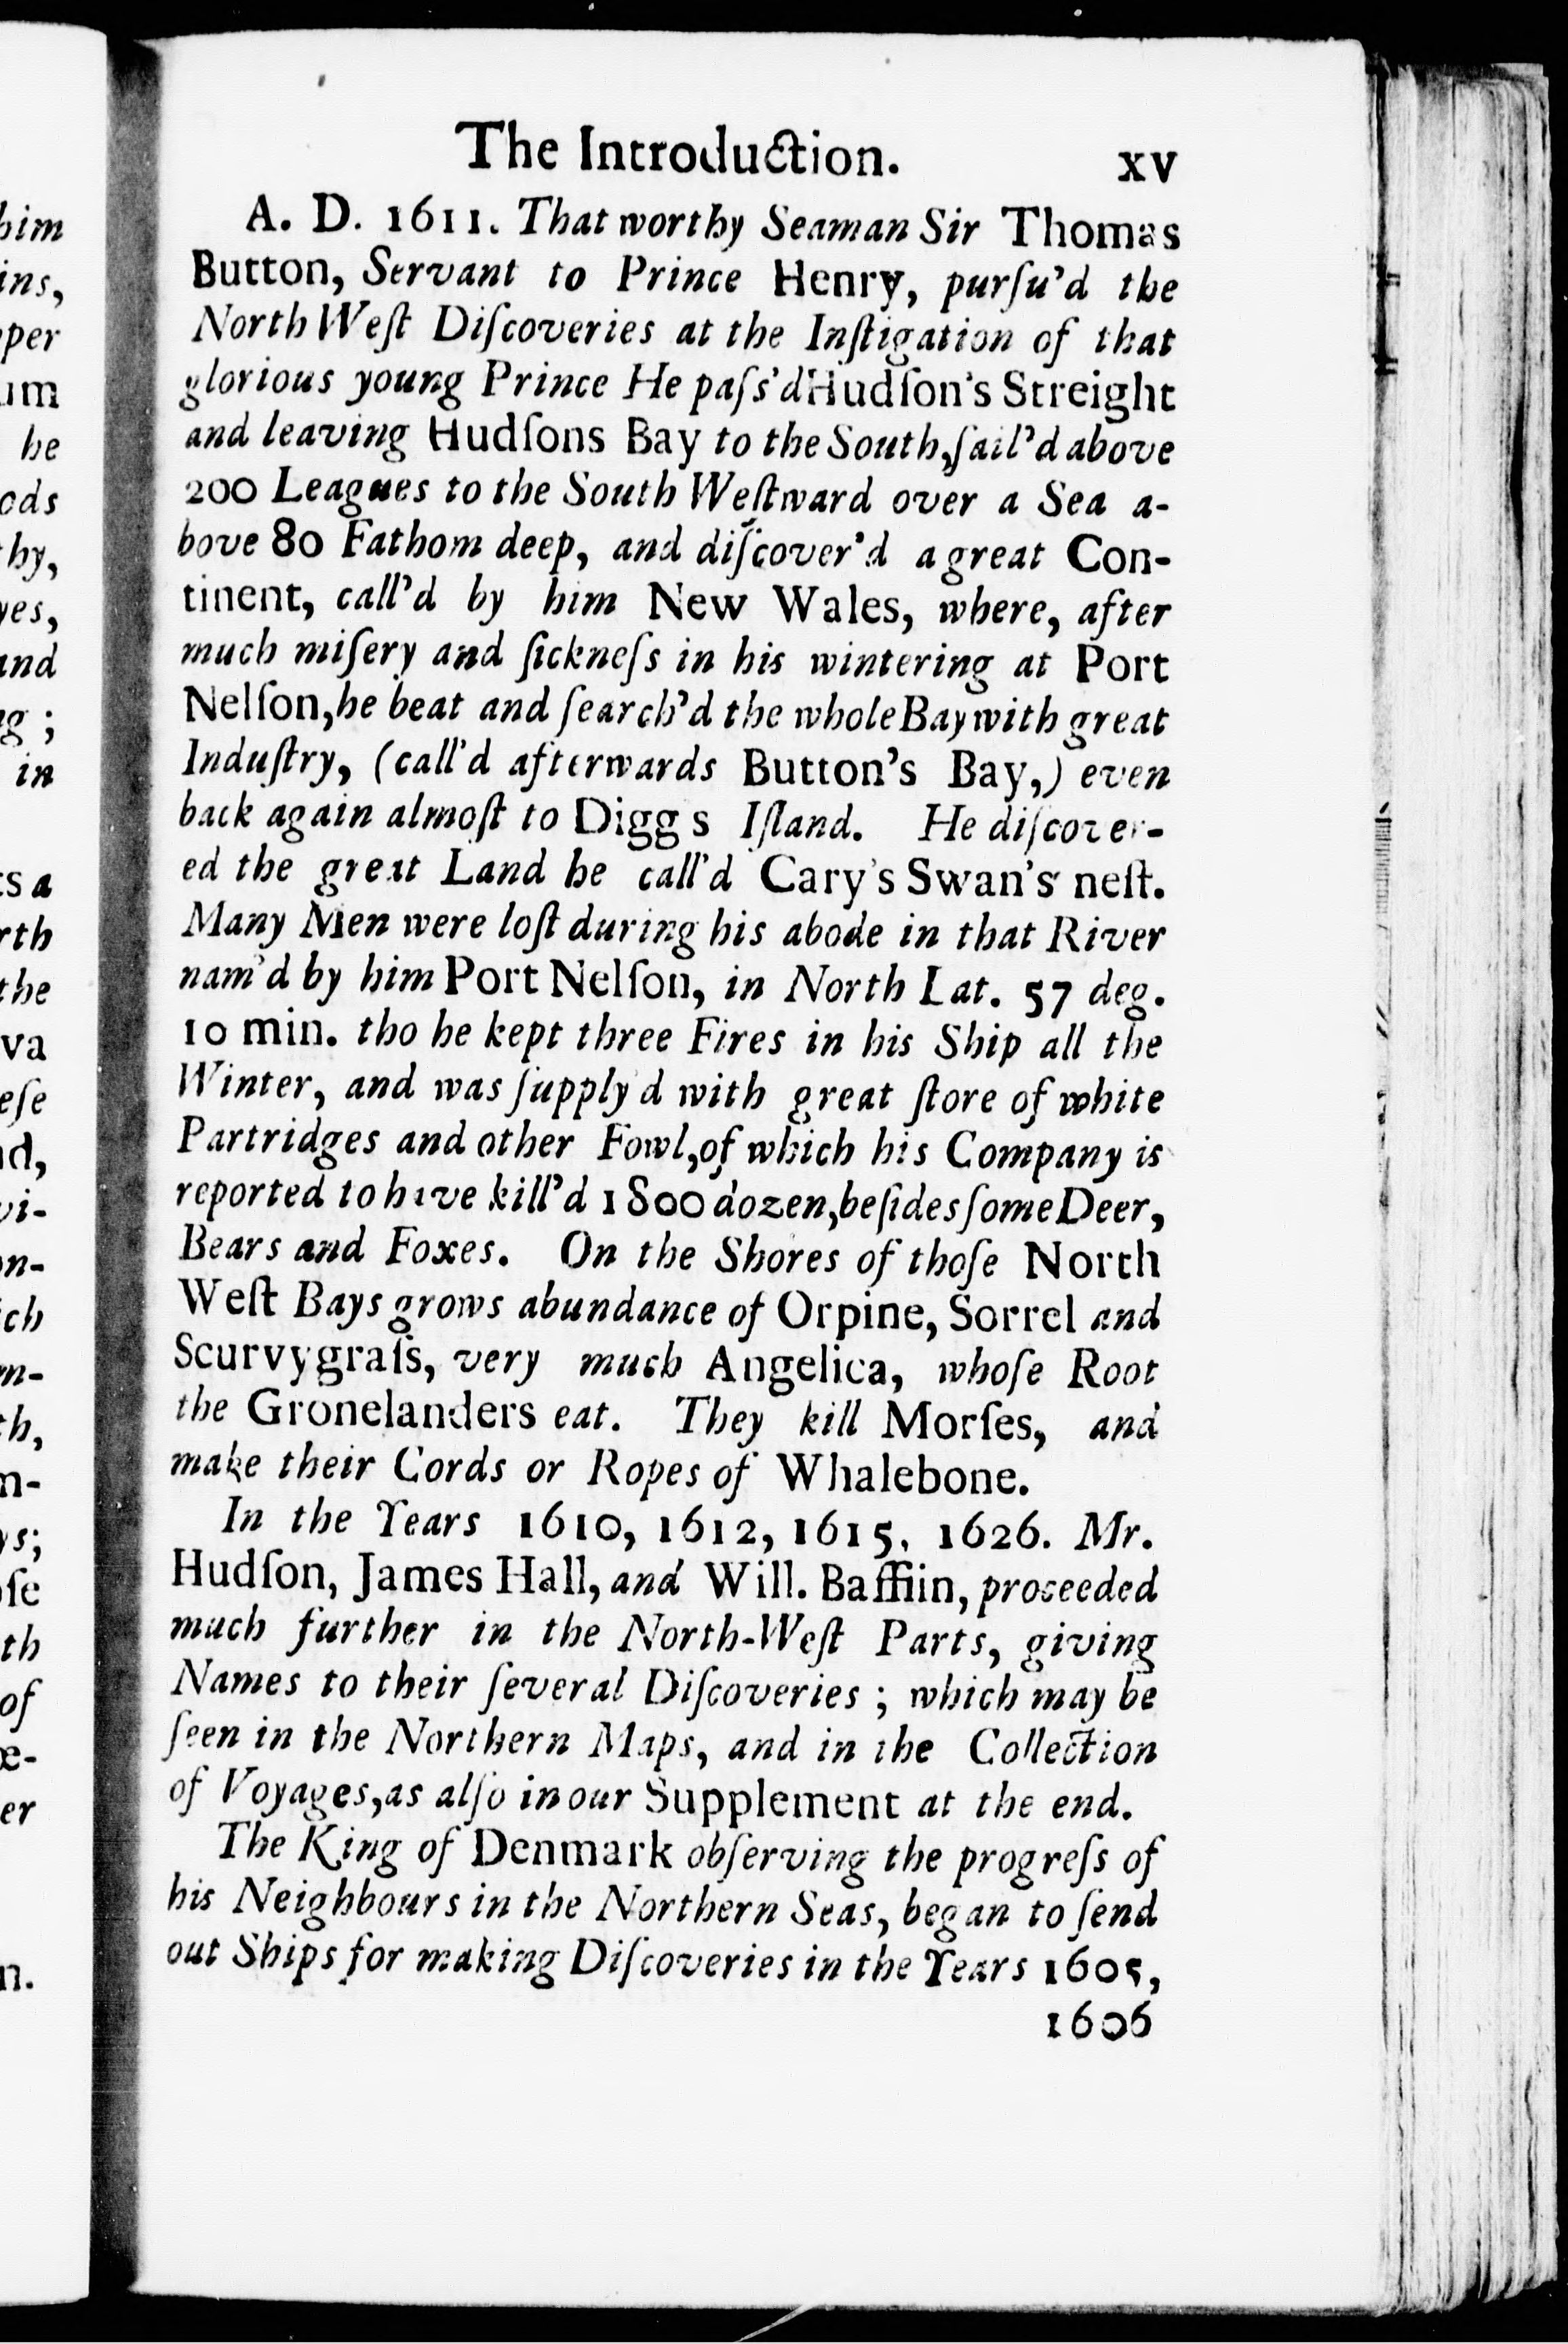 The Introduction. xv
A. D. 1611. That worthy Seaman Sir Thomas
Button, Servant to Prince Henry, purſu'd the
North Weſt Diſcoveries at the Inſtigation of that
glorious young Prince He paſs'd Hudſon's Streight
and leaving Hudſons Bay to the South, ſail'd above
200 Leagues to the South Weſtward over a Sea a-
bove 80 Fathom deep, and diſcover'd a great Con-
tinent, call'd by him New Wales, where, after
much miſery and ſickneſs in his wintering at Port
Nelſon, he beat and ſearch'd the whole Bay with great
Induſtry, (call'd afterwards Button's Bay,) even
back again almoſt to Diggs Iſland. He diſcover-
ed the great Land he call'd Cary's Swan's neſt.
Many Men were loſt during his abode in that River
nam'd by him Port Nelſon, in North Lat. 57 deg.
10 min. tho he kept three Fires in his Ship all the
Winter, and was ſupply'd with great ſtore of white
Partridges and other Fowl, of which his Company is
reported to have kill'd 1800 dozen, beſides ſome Deer,
Bears and Foxes. On the Shores of thoſe North
Weſt Bays grows abundance of Orpine, Sorrel and
Scurvygraſs, very much Angelica, whoſe Root
the Gronelanders eat. They kill Morſes, and
make their Cords or Ropes of Whalebone.
In the Years 1610, 1612, 1615, 1626. Mr.
Hudſon, James Hall, and Will. Baffiin, proceeded
much further in the North-Weſt Parts, giving
Names to their ſeveral Diſcoveries ; which may be
ſeen in the Northern Maps, and in the Collection
of Voyages, as alſo in our Supplement at the end.
The King of Denmark obſerving the progreſs of
his Neighbours in the Northern Seas, began to ſend
out Ships for making Diſcoveries in the Years 1605,
1606